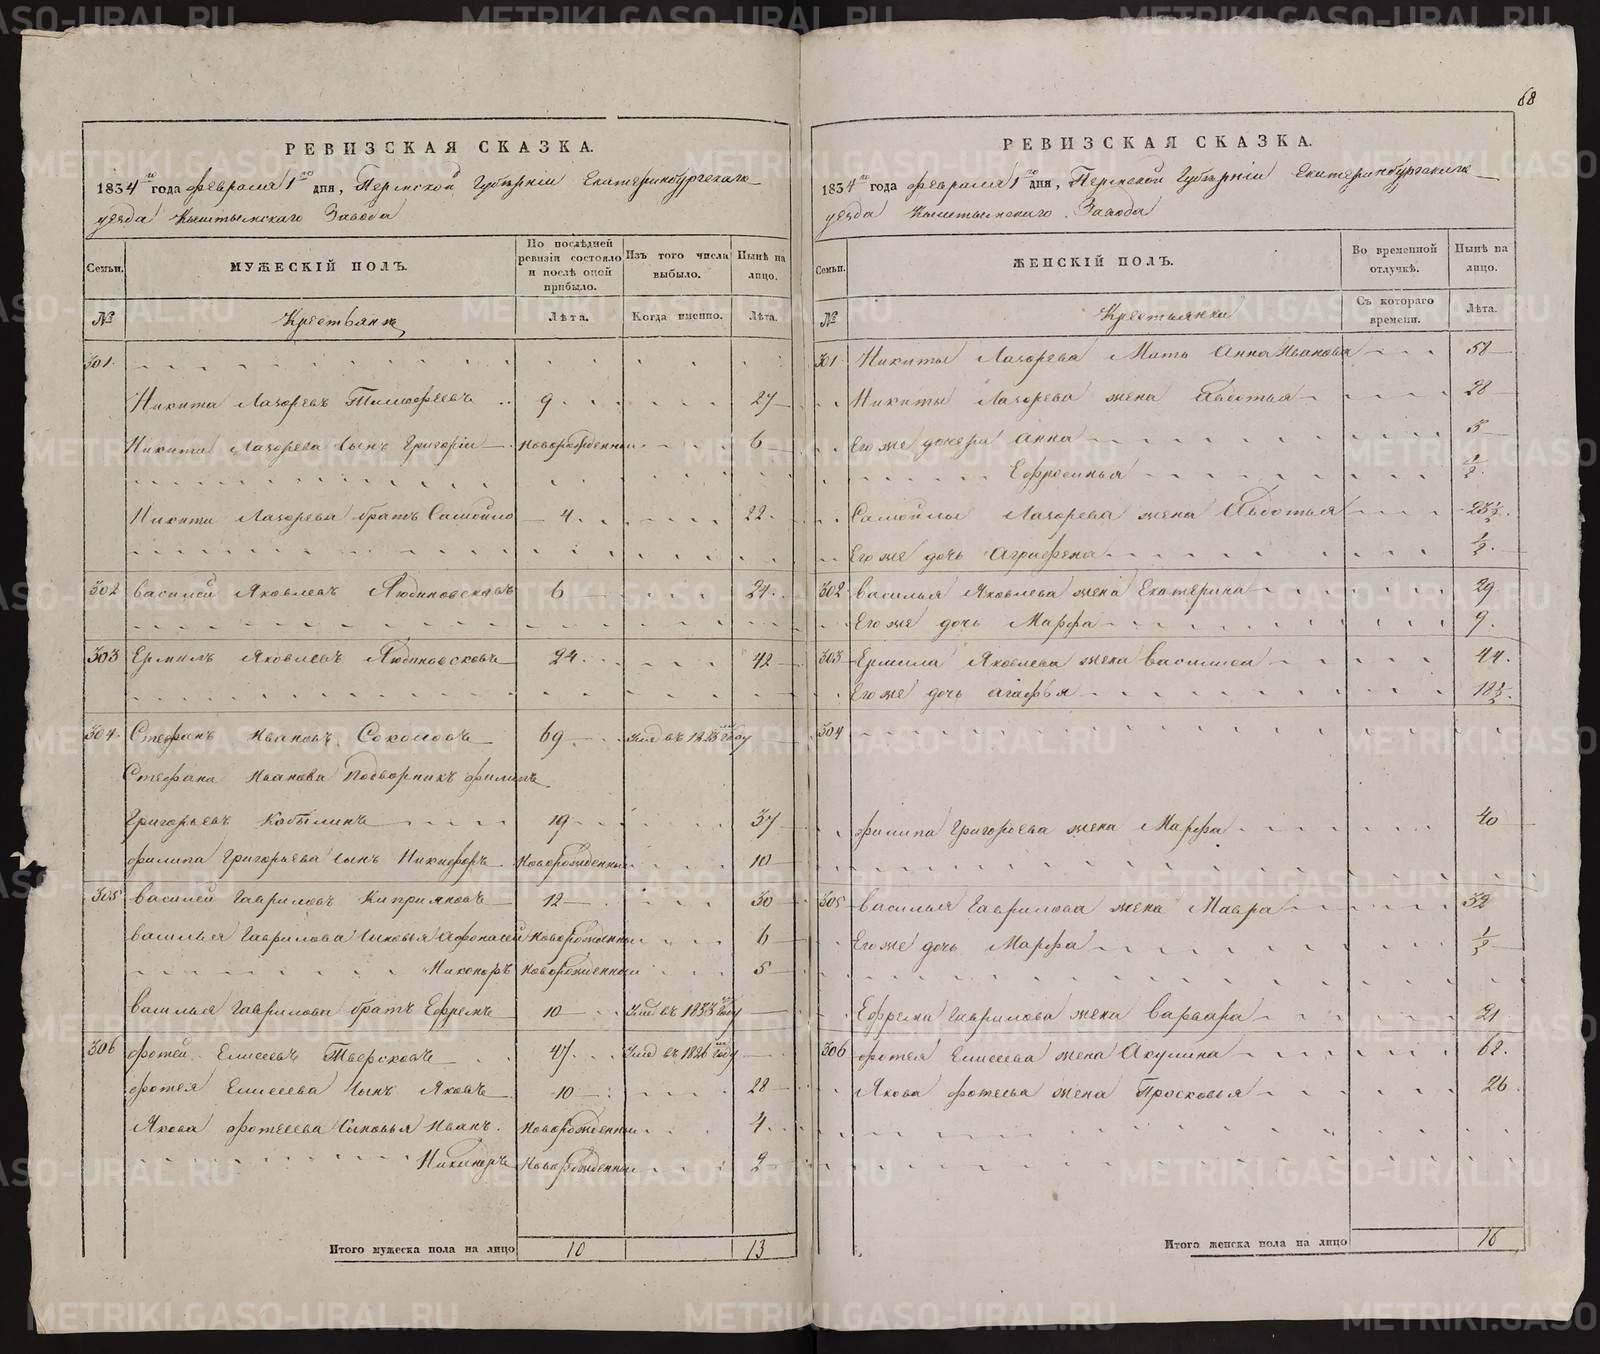 68
РЕВИЗСКАЯ СКАЗКА.
1834го года февраля 1го дня, Пермской Губерніи Екатеринбургскаго
уезда Кыштымскаго Завода
Семьи.
МУЖЕСКІЙ ПОЛЪ.
По послѣдней ревизіи состояло и послѣ оной прибыло.
Изъ того числа выбыло.
Нынѣ на лицо.
№
Крестьянъ
Лѣта.
Когда имянно.
Лѣта.
301.
Никита Лазоревъ Тимофеевъ 9 27
Никиты Лазорева сынъ Григорій новорожденный 6
Никиты Лазорева братъ Самойло 4 22
302 Василей Яковлевъ Людиновсковъ 6 24
303 Ермилъ Яковлевъ Людиновсковъ 24 42
304. Стефанъ Ивановъ Соколовъ 69
Стефана Иванова подворникъ Филипъ
Григорьевъ Кобылинъ 19 37
Филипа Григорьева сынъ Никифоръ новорожденный 10
305 Василей Гавриловъ Киприяновъ 12 30
Василья Гаврилова сыновья Афонасей новорожденный 6
Никоноръ новорожденный 5
Василья Гаврилова братъ Ефремъ 10 Умъ въ 1833 году
306 Фотей Елисеевъ Тверсковъ 47 Умъ въ 1826 году
Фотея Елисеева сынъ Яковъ 10 28
Якова Фотеева сыновья Иванъ новорожденный 4
новорожденный 2
Итого мужеска пола на лицо 10 13
РЕВИЗСКАЯ СКАЗКА.
1834го года февраля 1го дня, Пермской Губерніи Екатеринбургскаго
уезда Кыштымскаго Завода
Семьи.
ЖЕНСКІЙ ПОЛЪ.
Во временной отлучкѣ.
Нынѣ на лицо.
№
Крестьянки
Съ котораго времени.
Лѣта.
301 Никиты Лазорева мать Анна Иванова 58
Никиты Лазорева жена Авдотья 28
Его же дочери Анна 5
Ефросинья 1/2
Самойлы Лазорева жена Авдотья
Его же дочь Агрифена 1/2
302 Василья Яковлева жена Екатерина 29
Его же дочь Марфа 9
303 Ермила Яковлева жена Василиса 44
Его же дочь Агафья
304
Филипа Григорьева жена Марфа 40
305 Василья Гаврилова жена Мавра 32
Его же дочь Марфа
Ефрема Гаврилова жена Варвара 21
306 Фотея Елисеева жена Акулина 62
Якова Фотеева жена Просковья 26
Итого женска пола на лицо 16
METRIKI.GASO-URAL.RU